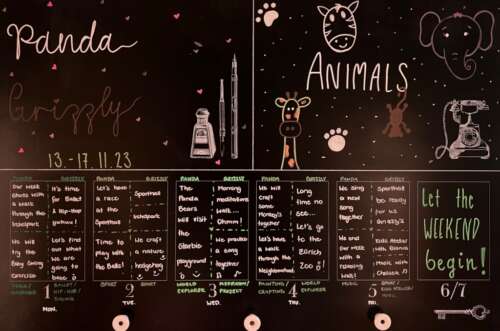 Panda
Grizzly
13.-17.11.23
ANIMALS
PANDA
Our week
starts with
a walk
through the
We will
try the
Easy Going
exercise
GRIZZLY
It's time
for Ballet
& Hip-Hop
yuhuu!
Let's find
out what
we are
going to
1
MON.
PANDA
Let's have
a race
at the
Sporthall
Time to
play with
the Balls!
SPORT
GRIZZLY
Sporthall
Irchelpark
We craft
in nature
hedgehog
SPORT
2
TUE.
PANDA
The
Panda
Bears
will visit
the
playground
WORLD
EXPLORER
GRIZZLY
Morning
meditations
with...
Ohmm...
We practice
a song
together
3
WED.
PANDA
We will
craft
some
together
Let's have
a walk
through the
Neighborhood
PAINTING
CRAFTING
GRIZZLY
Long
time no
see...
Let's go
to the
Zürich
Zoo
WORLD
EXPLORER
4
THU.
PANDA
We sing
a new
song
together
End our
week with
a relaxing
walk
MUSIC
GRIZZLY
Sporthall
be ready
for us
Grizzly's
Kids Atelier
Music with
Chelsea
SPORT
5
FRI.
Let the
WEEKEND
begin!
6/7